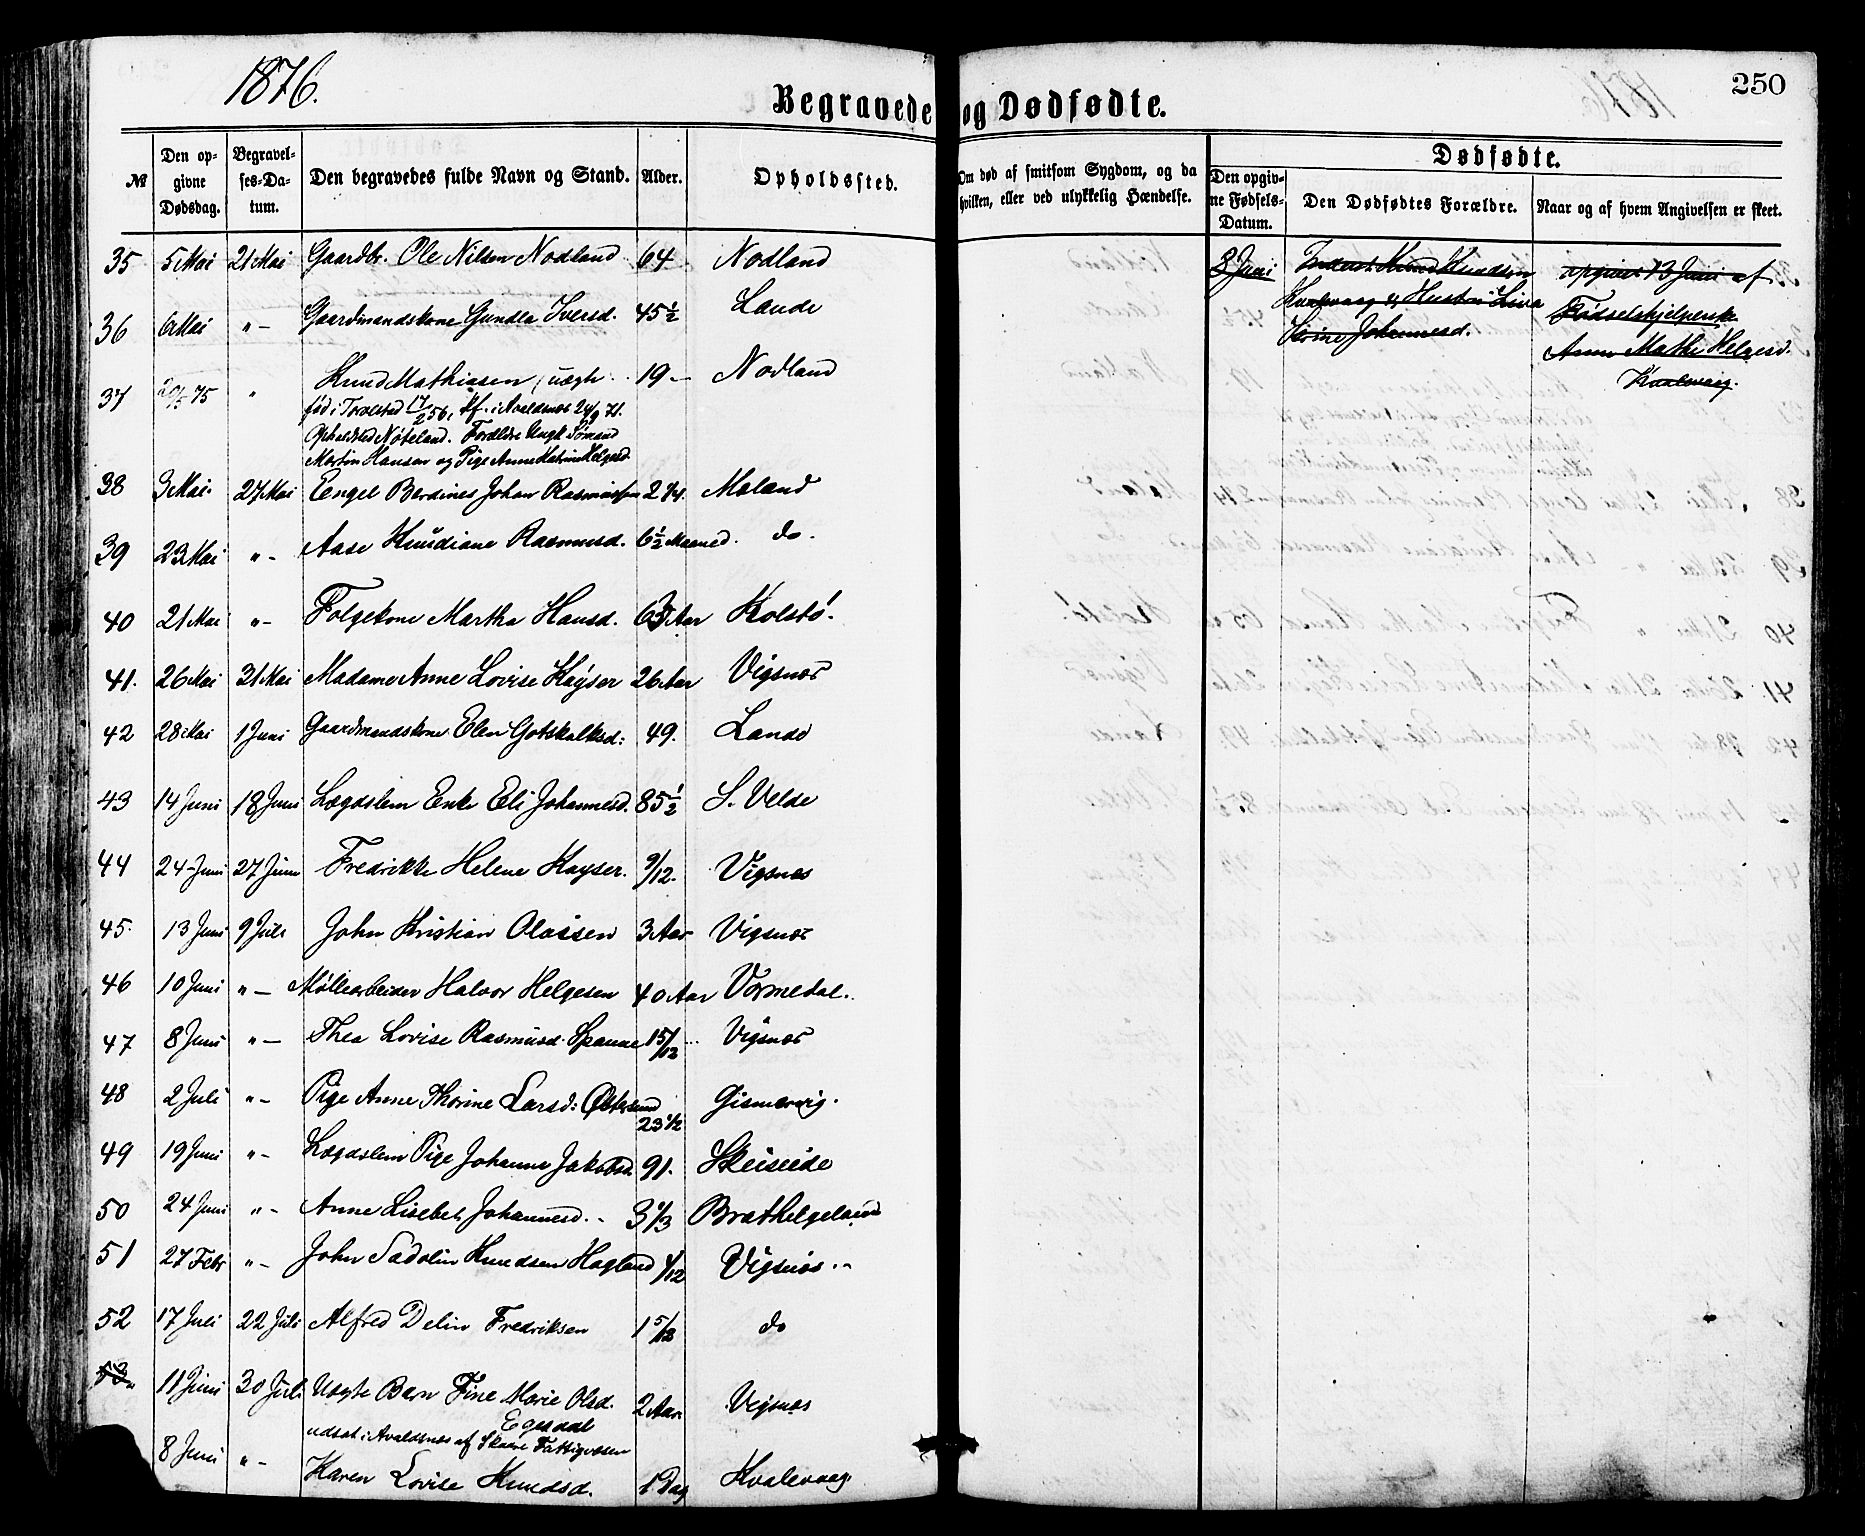 1876.
Begravede og Dødfødte.
250
№
Den opgivne Dødsdag.
Begravelses-Datum.
Den begravedes fulde Navn og Stand.
Alder.
Opholdssted.
Om død af smitsom Sygdom, og da hvilken, eller ved ulykkelig Hændelse.
Dødfødte.
Den opgivne Fødsels-Datum.
Den Dødfødtes Forældre.
Naar og af hvem Angivelsen er skeet.
35 5 Mai 21 Mai Gaardbr. Ole Nilsen Nodland 64 Nodland
8 Juni
Knud Knudsen
Kvalevaag og Hustru
Serine Johannesd.
opgivet 13 Juni af
Fødselshjelperske
Anne Mathe Helgesd.
Kvalevaag.
36 6 Mai "- Gaardmandskone Gundla Iversd. 45 1/2 Lande
37 75 " Knud Mathiasen, uægte 19 - Nodland
fød i Torvestad 17/2 56, kf. i Avaldsnes 24/9 71.
Opholdsted Nøteland. Forældre Ungk. Sømand
Martin Hansen og Pige Anne Katrine Helgesd
38 3 Mai. 27 Mai Engel Berdines Johan Rasmussen 2 1/4. Moland
39 23 Mai "- Aase Knudiane Rasmusd. 6 1/2 Maaned. do.
40 21 Mai "- Folgekone Martha Hansd. Aar Kolstø!
41. 26 Mai 31 Mai Madame Anne Lovise Kayser 26 Aar Vigsnæs
42 28 Mai 1 Juni Gaardmandskone Elen Gotskalksd: 49. Lande
43 14 Juni 18 Juni Lægdslem Enke Eli Johannesd. 85 1/2 S. Velde
44 24 Juni 27 Juni Fredrikke Helene Kayser. 9/12. Vigsnæs
45. 13 Juni 9 Juli John Kristian Olassen 3 Aar Vigsnæs
46 10 Juni "- Møllearbeider Halvor Helgesen 40 Aar Vormedal..
47 8 Juni "- Thea Lovise Rasmusd. Spanne 15/12 ... Vigsnæs
48 2 Juli "- Pige Anne Thorine Larsd: Østesund 23 1/2 Gismarvig.
49 19 Juni "- Lægdslem Pige Johanne Jakobsd. 91. Skeiseide
50 24 Juni "- Anne Lisebet Johannesd. - 3 1/3 Brathelgeland
51 27 Febr "- John Sadolin Knudsen Hagland 1/12 Vigsnæs --
52 17 Juli 22 Juli Alfred Delin Fredriksen 1 5/12 do
53. 11 Juni 30 Juli Uægte Barn Fine Marie Olsd. 2 Aar. Vigsnæs
Egesdal
udsat i Avaldsnes af Skaare Fattigvæsen
8 Juni "- Karen Lovise Knudsd. 1 Dag Kvalevaag